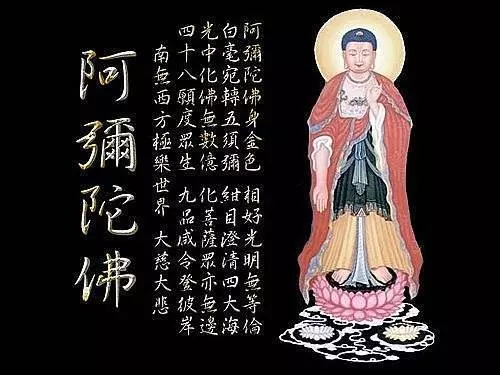 阿彌陀佛身金色 相好光明無等倫
白毫宛轉五須彌 紺目澄清四大海
光中化佛無數億 化菩薩眾亦無邊
四十八願度眾生 九品咸令登彼岸
南無西方極樂世界 大慈大悲
阿彌陀佛